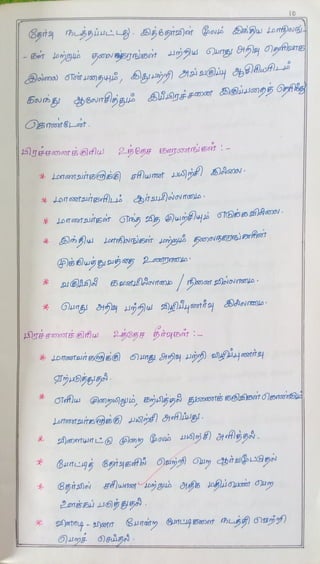 10
தேர்வு நடத்தப்பட்டது. இத்தேர்வின் மூலம் இந்திய மாநிலங்-
-கள் மற்றும் தலைநகரங்கள் பற்றிய பொது அறிவு தெளிவாக
இல்லை என்பதையும், இதுபற்றி அவ்வகுப்பு ஆசிரியரிடம்
கலந்து ஆலோசித்தும் இப்பிரச்சனை இருப்பதைத் தெரிந்து
கொண்டேன்.
பிரச்சனைக்குரிய உத்தேச காரணங்கள் :-
* மாணவர்களுக்கு சரியான பயிற்சி இல்லை.
* மாணவர்களிடம் ஆர்வமில்லாமை.
* மாணவர்கள் எந்த வித முயற்சியும் எடுக்கவில்லை.
* இந்திய மாநிலங்கள் மற்றும் தலைநகரங்களின்
முக்கியத்துவத்தை உணராமை.
* வகுப்பில் கவனமில்லாமை / நினைவில்லாமை.
* பொது அறிவு பற்றிய விழிப்புணர்வு இல்லாமை.
பிரச்சனைக்குரிய உத்தேச தீர்வுகள் :-
* மாணவர்களுக்கு பொது அறிவு பற்றி விழிப்புணர்வு
ஏற்படுத்துதல்
* எளிய முறையிலும், கற்பித்தல் துணைக்கருவிகள் கொண்டும்
மாணவர்களுக்கு பயிற்சி அளிப்பது.
* விளையாட்டு முறை மூலம் பயிற்சி அளித்தல்.
* போட்டித் தேர்வுகளில் வெற்றி பெற ஆர்வமூட்டுதல்
* தேர்வில் சரியான மற்றும் அதிக மதிப்பெண் பெற
ஊக்கப் படுத்துதல்.
* வினாடி - வினா போன்ற போட்டிகளை நடத்தி வெற்றி
பெறச் செய்தல்.